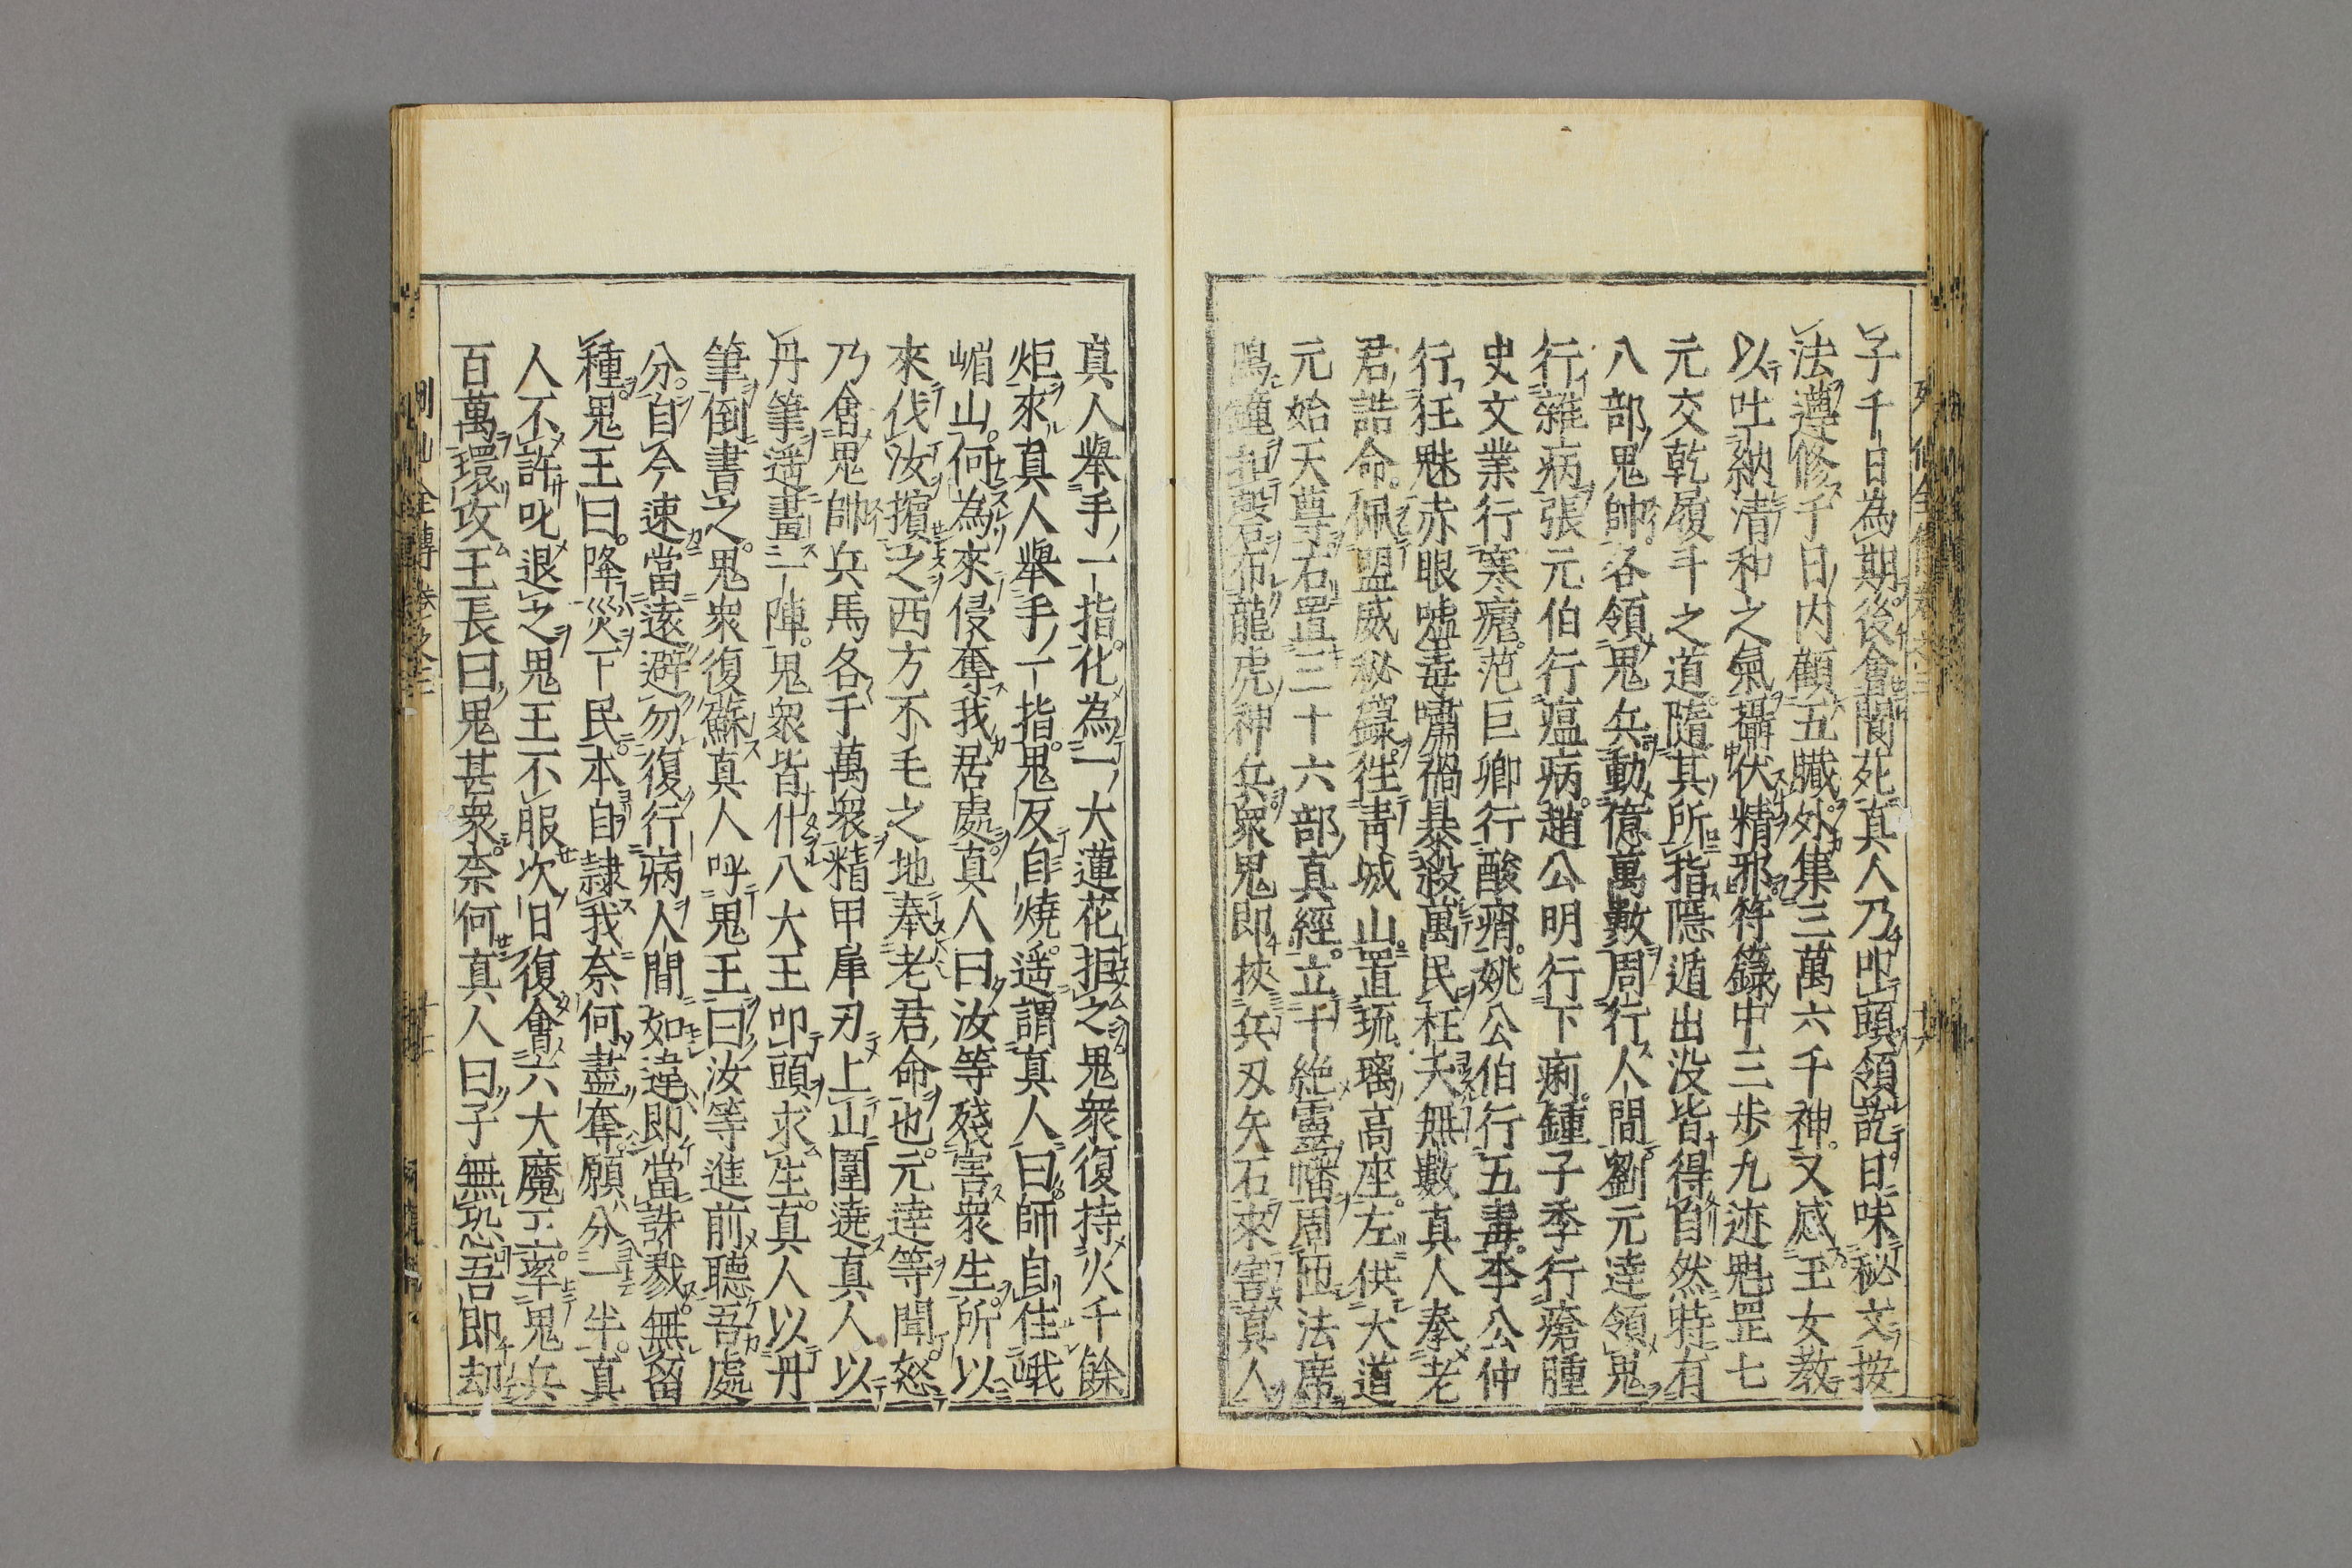 子千日為期後會閬苑真人乃叩頭領訖日味秘文按
法遵修千日内顧五臟外集三萬六千神又感玉女教
以吐納清和之氣攝伏精邪符籙中三歩九迹魁罡七
元交乾履斗之道隨其所指隠遁出没皆得自然時有
八部鬼帥各領鬼兵動億萬數周行人間劉元達領鬼
行雜病張元伯行瘟病趙公明行下痢鍾子季行瘡腫
史文業行寒瘧范巨卿行酸痟姚公伯行五毒李公仲
行狂魅赤眼嘘毒嘯禍暴殺萬民枉夭無數真人奉老
君誥命佩盟威秘籙徃青城山置琉璃高座左供大道
元始天尊右置三十六部真經立十絶靈幡周匝法席
鳴鐘扣磬布龍虎神兵衆鬼即挾兵刃矢石來害真人
真人擧手一指化為一大蓮花拒之鬼衆復持火千餘
炬來真人擧手一指鬼反自燒遥謂真人曰師自住峨
嵋山何為來侵奪我居處真人曰汝等殘害衆生所以
來伐汝擯之西方不毛之地奉老君命也元達等聞怒
乃會鬼帥兵馬各千萬衆精甲犀刃上山圍遶真人以
丹筆遥畫一陣鬼衆皆仆八大王叩頭求生真人以丹
筆倒書之鬼衆復蘇真人呼鬼王曰汝等進前聽吾處
分自今速當遠避勿復行病人間如違即當誅戮無留
種鬼王曰降災下民本自隷我奈何盡奪願分一半真
人不許叱退之鬼王不服次日復會六大魔王率鬼兵
百萬環攻王長曰鬼甚衆奈何真人曰子無恐吾即却
列仙全傳卷之三